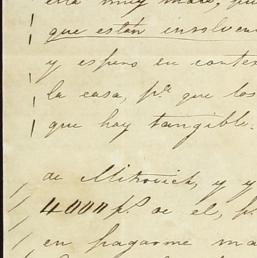 ella muy malo, que
que están insolven
y espero en contes
la casa, pª que los
que hay tangible.
de Mitrovich, y y
4000 pˢ de el, p
en pagarme ma